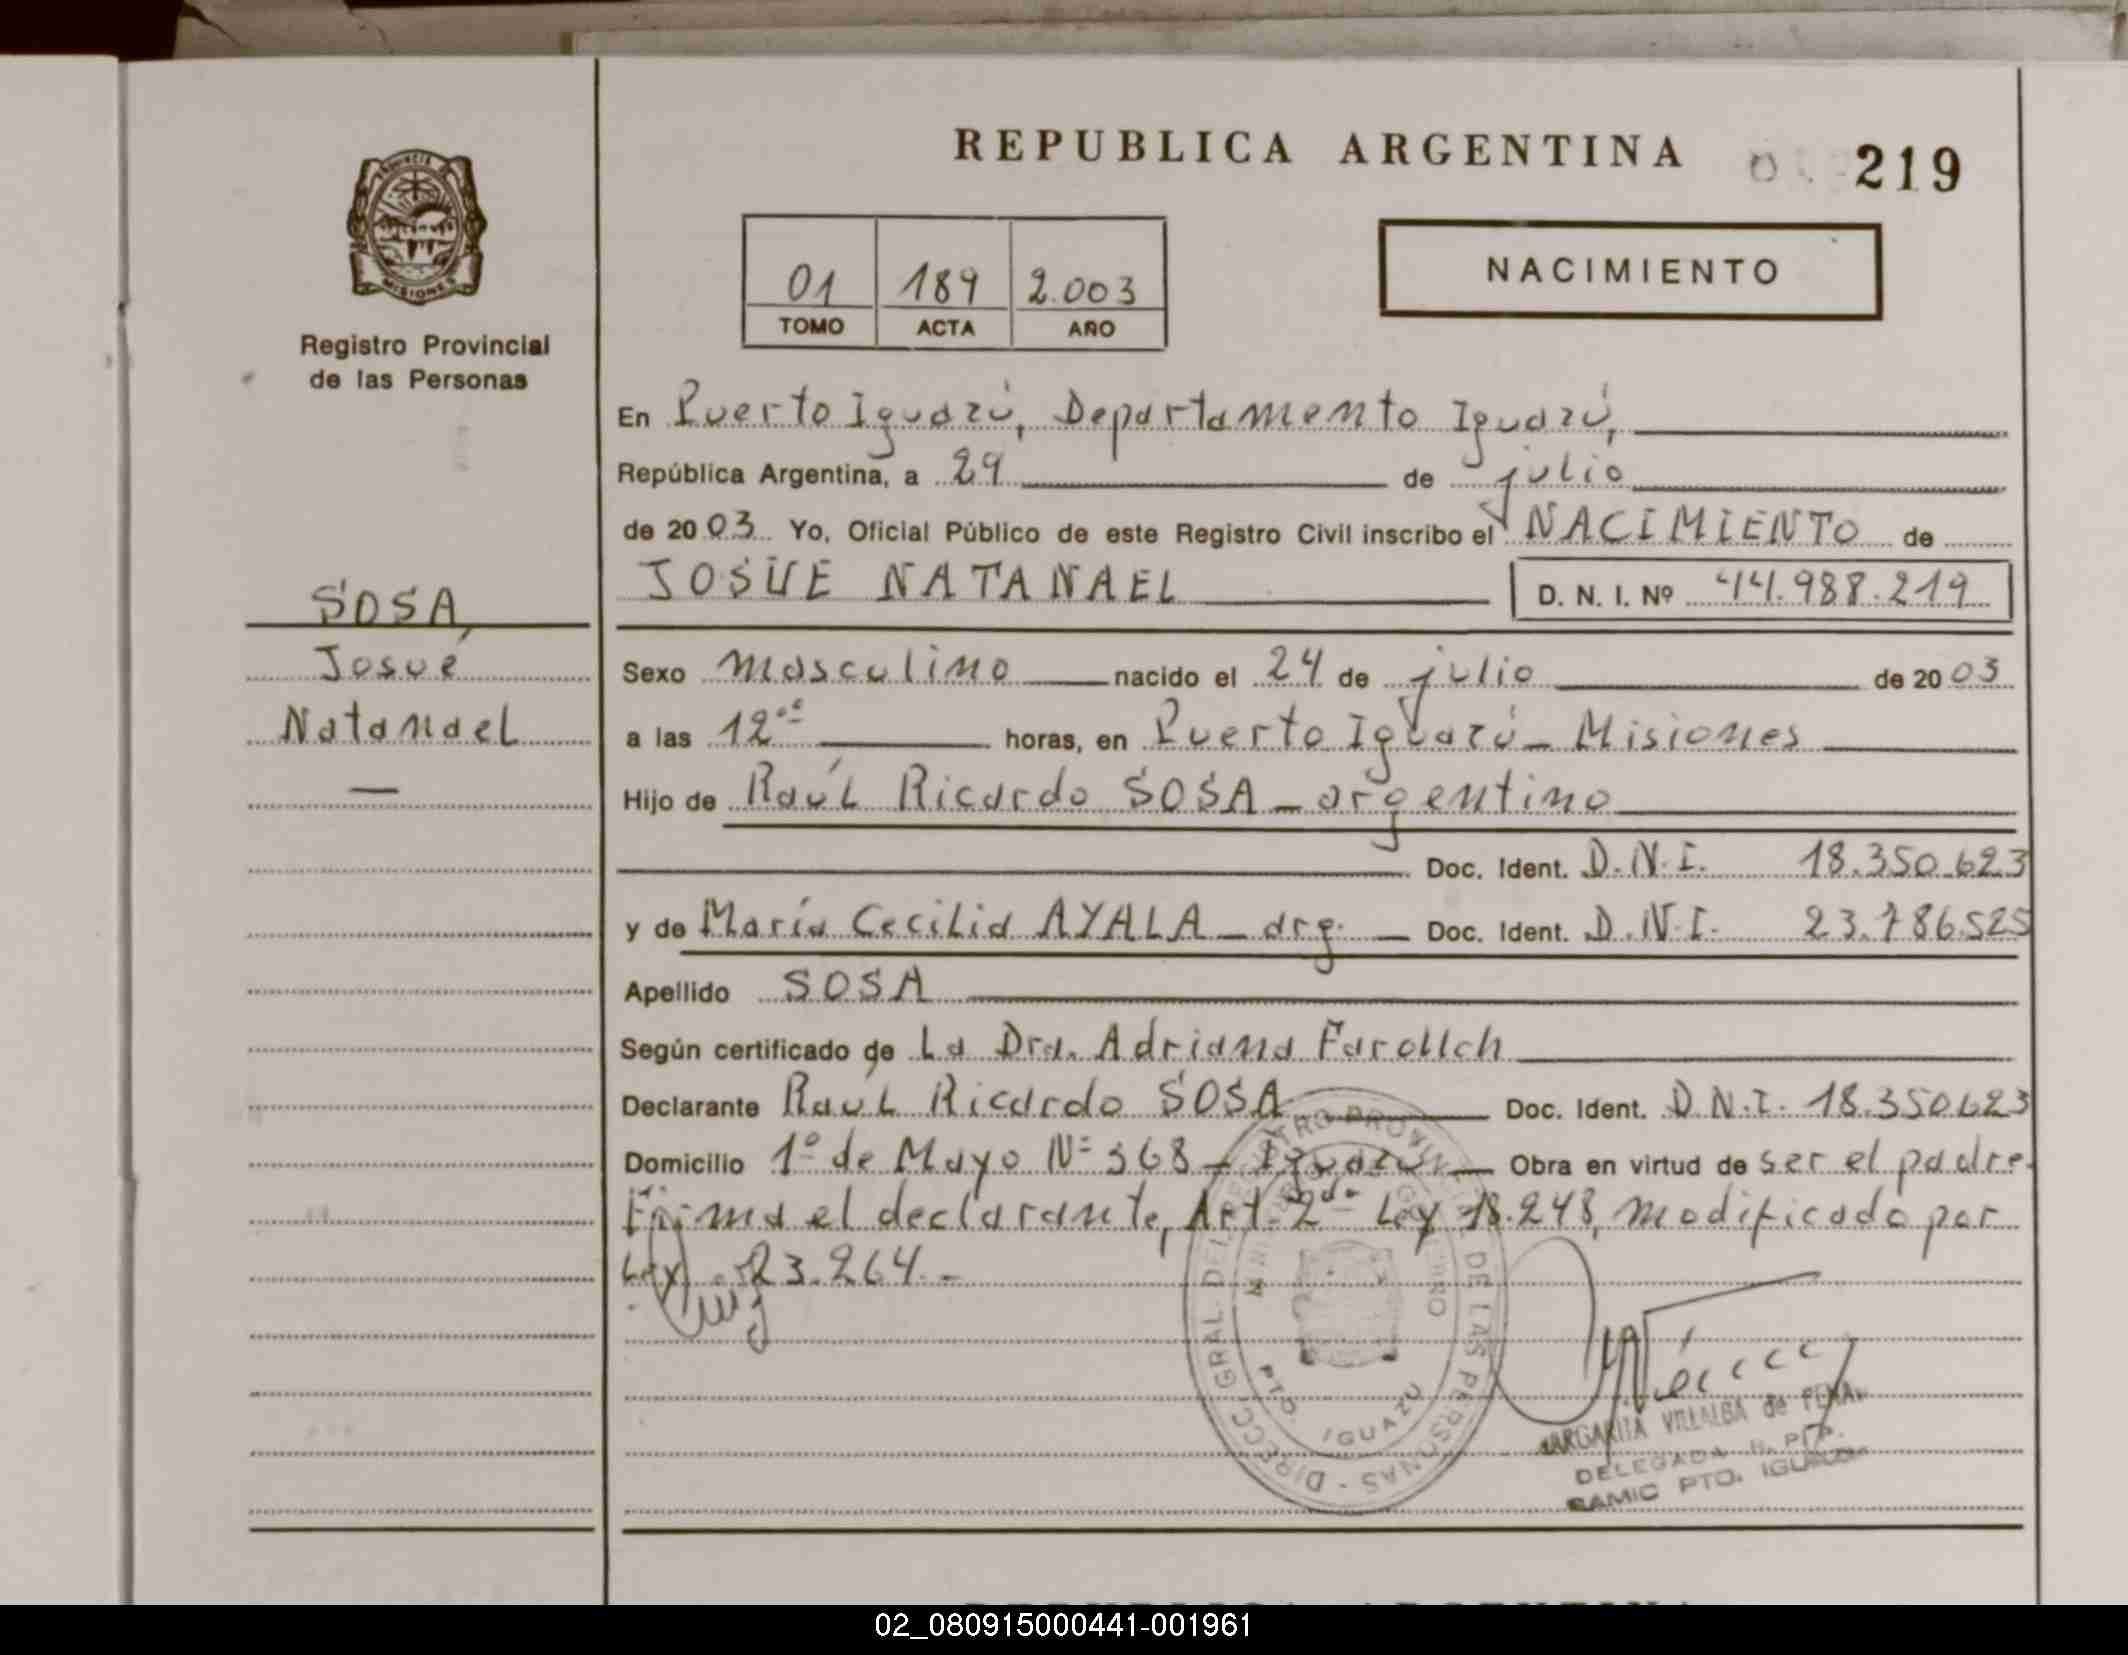 REPUBLICA ARGENTINA
219
PROVINCIA
MISIONES
Registro Provincial
de las Personas
01 189 2.003
TOMO ACTA AÑO
NACIMIENTO
En Puerto Iguazú, Departamento Iguazú,
República Argentina, a 29 de julio
de 2003 Yo, Oficial Público de este Registro Civil inscribo el NACIMIENTO de
JOSUE NATANAEL D. N. I. Nº 44.988.219
SOSA
Josué
Natanael
Sexo masculino nacido el 24 de julio de 2003
a las 12°° horas, en Puerto Iguazú - Misiones
Hijo de Raúl Ricardo SOSA - argentino
Doc. Ident. D.N.I. 18.350.623
y de María Cecilia AYALA - arg. Doc. Ident. D.N.I. 23.786.525
Apellido SOSA
Según certificado de La Dra. Adriana
Declarante Raúl Ricardo SOSA Doc. Ident. D.N.I. 18.350623
Domicilio 1º de Mayo Nº 368 - Iguazú - Obra en virtud de ser el padre.
Firma el declarante, Art. 2do Ley 18.248, modificado por
Ley 23.264.-
DIRECC. GRAL. DEL REGISTRO PROVINCIAL DE LAS PERSONAS -
PTO. IGUAZU
MARGARITA VILLALBA de PENA
DELEGADA R. P. P.
PTO. IGUAZU
02_080915000441-001961